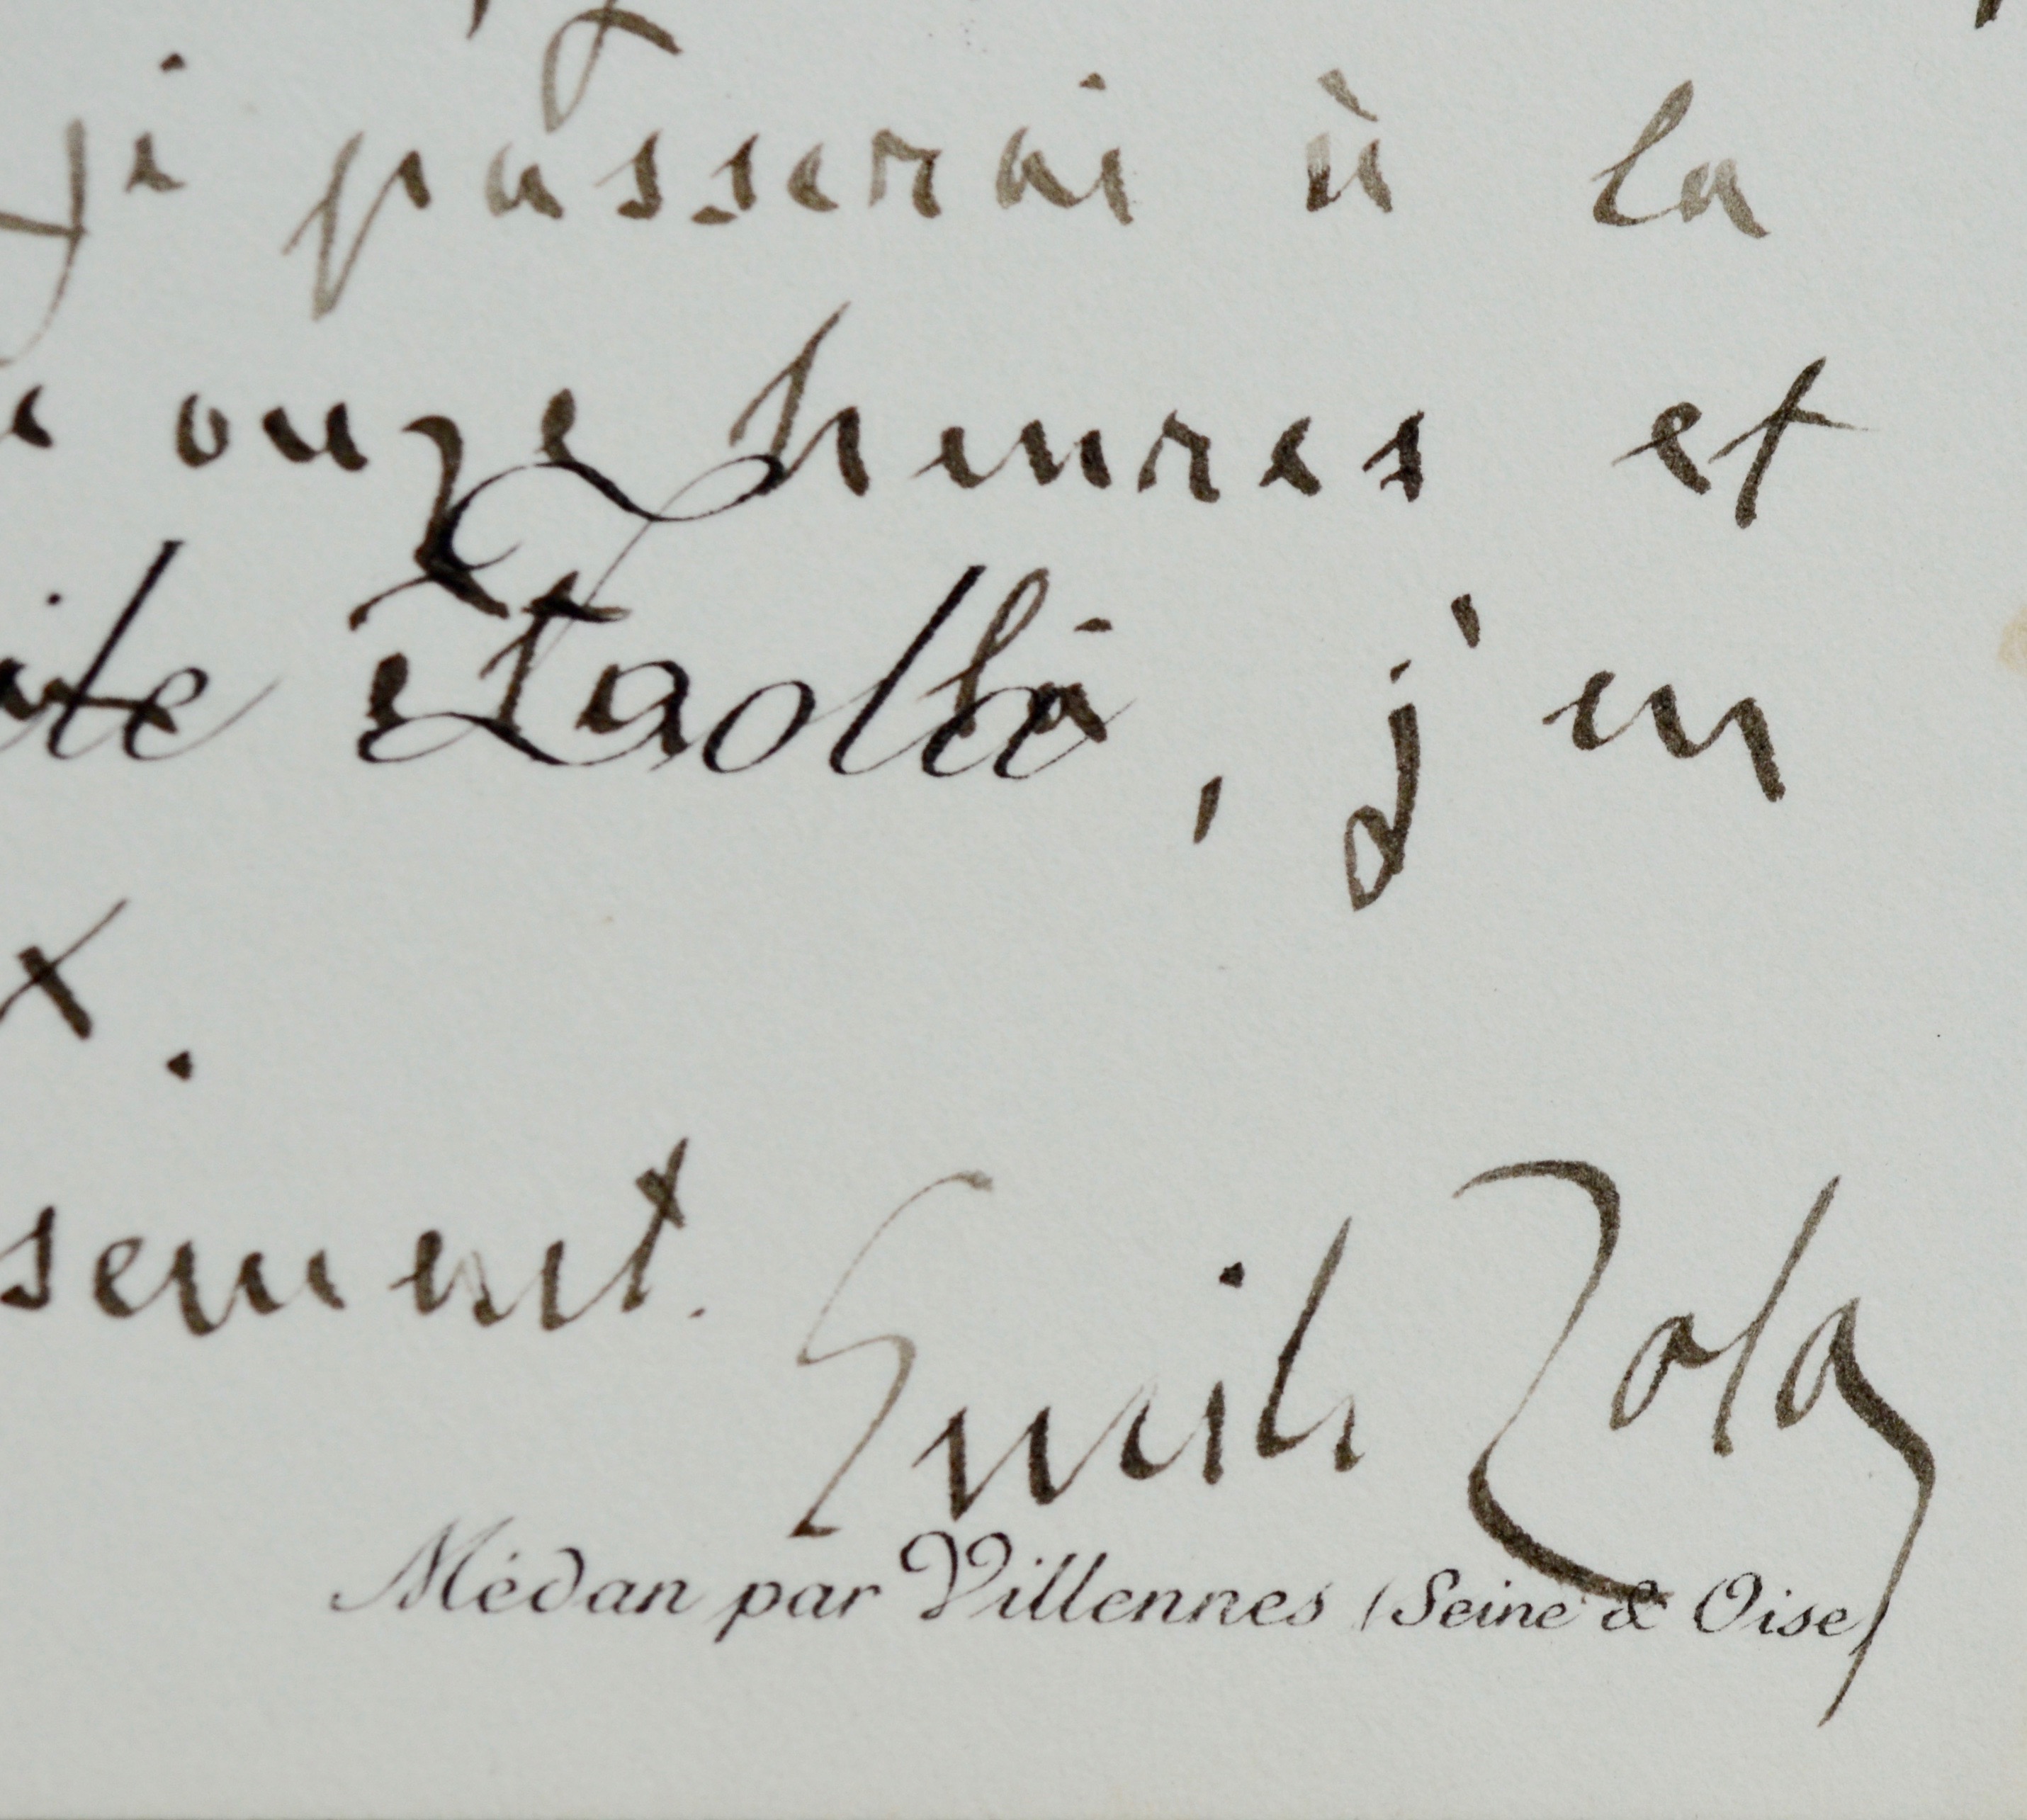 je passerai à la
onze heures et
était là, j'en
x.
sement.
Emile Zola
Médan par Villennes (Seine & Oise)